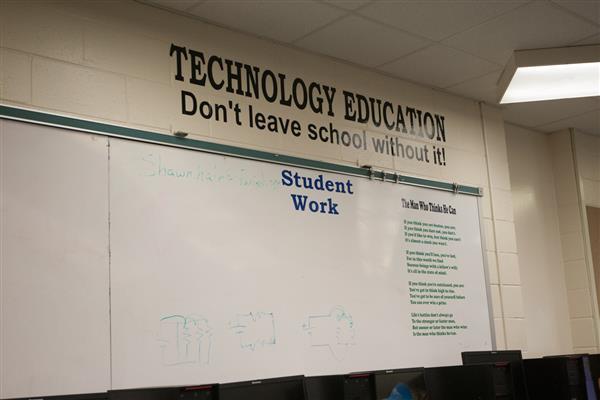 TECHNOLOGY EDUCATION
Don't leave school without it!
Student
Work
The Man Who Thinks He Can
If you think you are beaten, you are;
If you think you dare not, you don't.
If you'd like to win, but think you can't
It's almost a cinch you won't.
If you think you'll lose, you've lost,
For in this world we find
Success begins with a fellow's will;
It's all in the state of mind.
If you think you're outclassed, you are:
You've got to think high to rise.
You've got to be sure of yourself before
You can ever win a prize.
Life's battles don't always go
To the stronger or faster man,
But sooner or later the man who wins
Is the man who thinks he can.